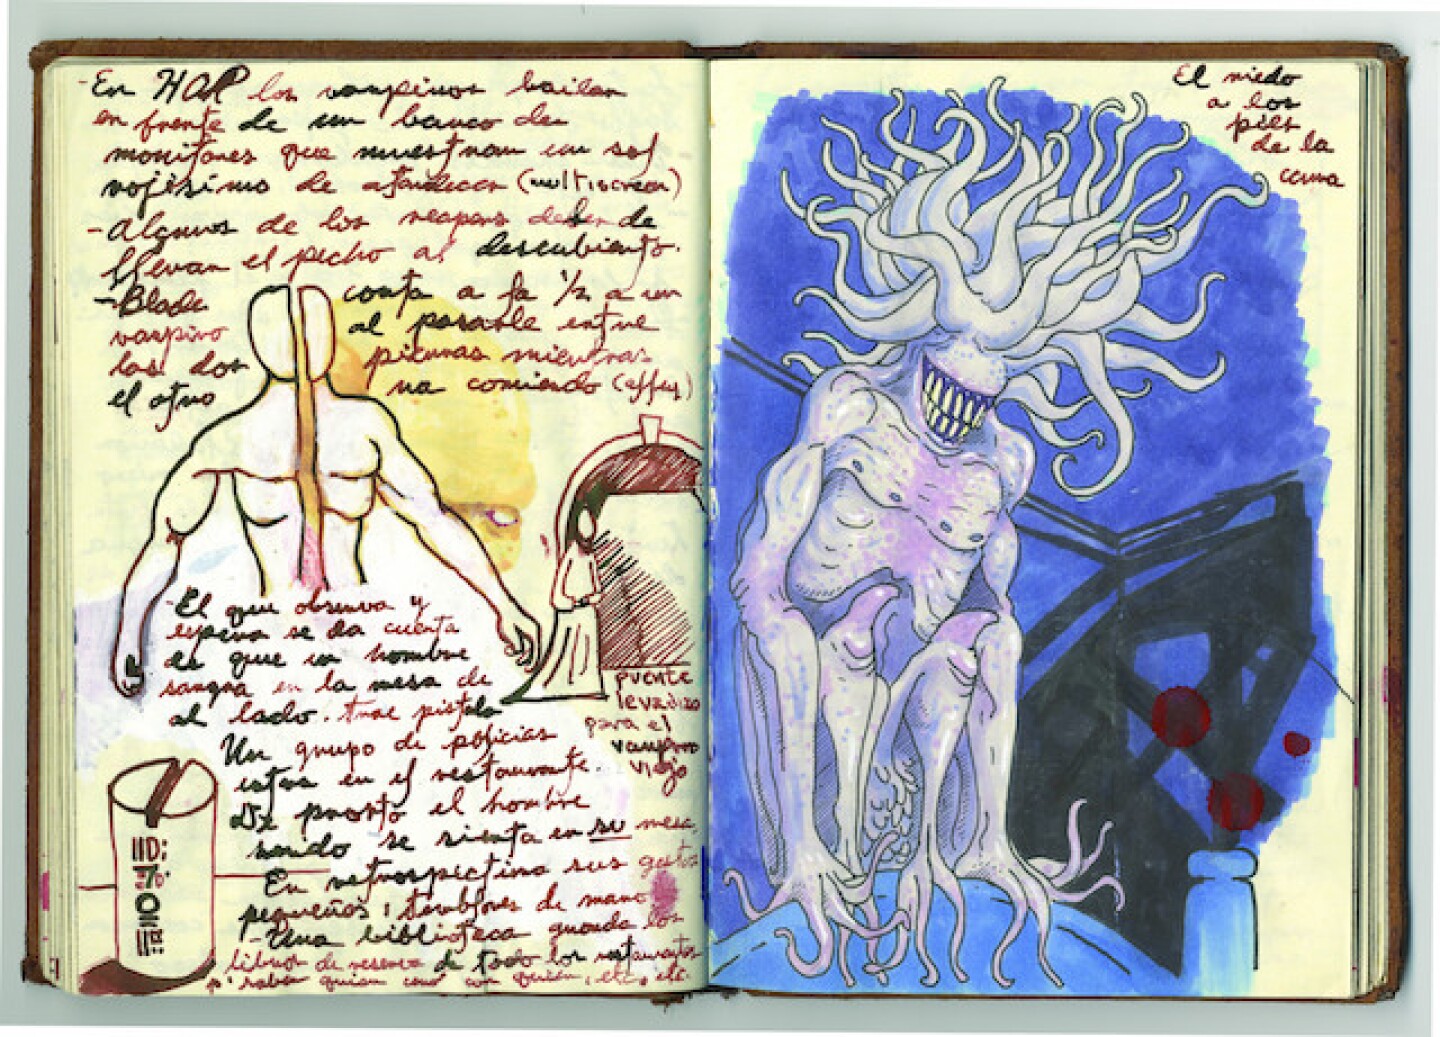 -En HOP los vampiros bailan
en frente de un banco de
monitores que muestran un sol
rojísimo de atardecer (multiscreen)
-Algunos de los reapers deben de
llevan el pecho al descubierto.
-Blade corta a la 1/2 a un
vampiro al pasarle entre
las dos piernas mientras
el otro va corriendo (effex)
-El que observa y
espera se da cuenta
es que un hombre
sangra en la mesa de
al lado. trae pistola
Un grupo de policias
estas en el restaurante.
De pronto el hombre
se sienta en su mesa
En retrospectiva sus gestos
pequeños; temblores de mano
-Una biblioteca guarda los
libros de reserva de todo los restaurantes
p' saber quien come con quien, etc, etc.
puente
levadizo
para el
vampiro
viejo
El miedo
a los
pies
de la
cama